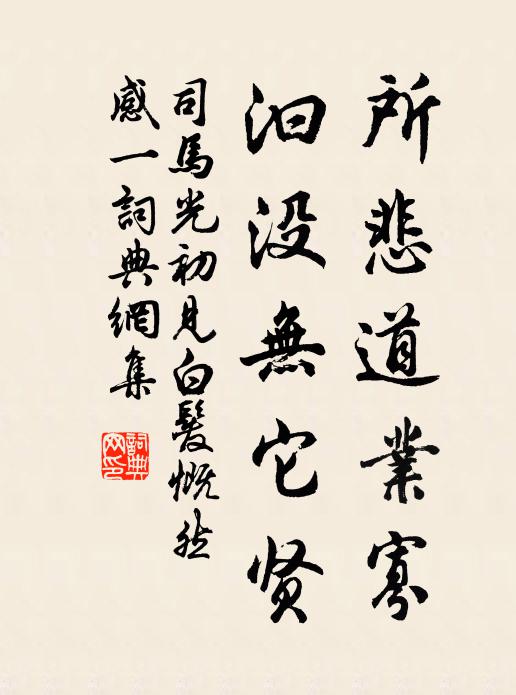 所悲道業寡
汩没無它贤
司馬光初見白髮慨然
感一詞典網集
詞典网印